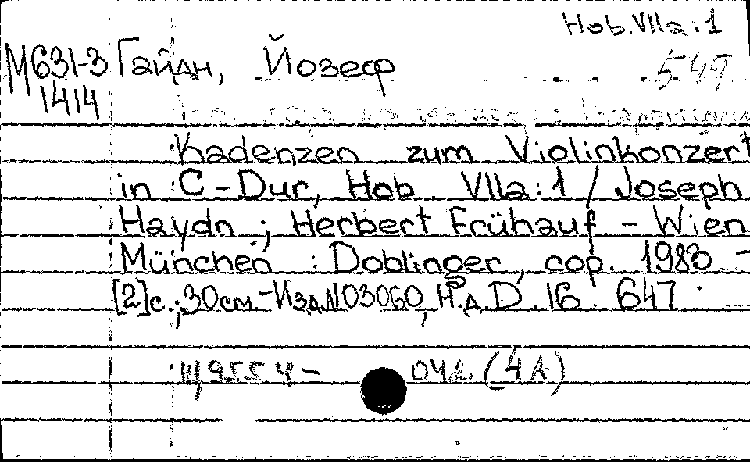 Hob. VIIa:1
М631-3 Гайдн, Йозеф 549
1414
Kadenzen zum Violinkonzert
in C-Dur, Hob VIIa:1 / Joseph
Haydn ; Herbert Frühauf - Wien
München : Doblinger, cop. 1980 -
[2]с.; 30см.-Изд.N03060, Н.д. D. 16. 647
04г. (4А)